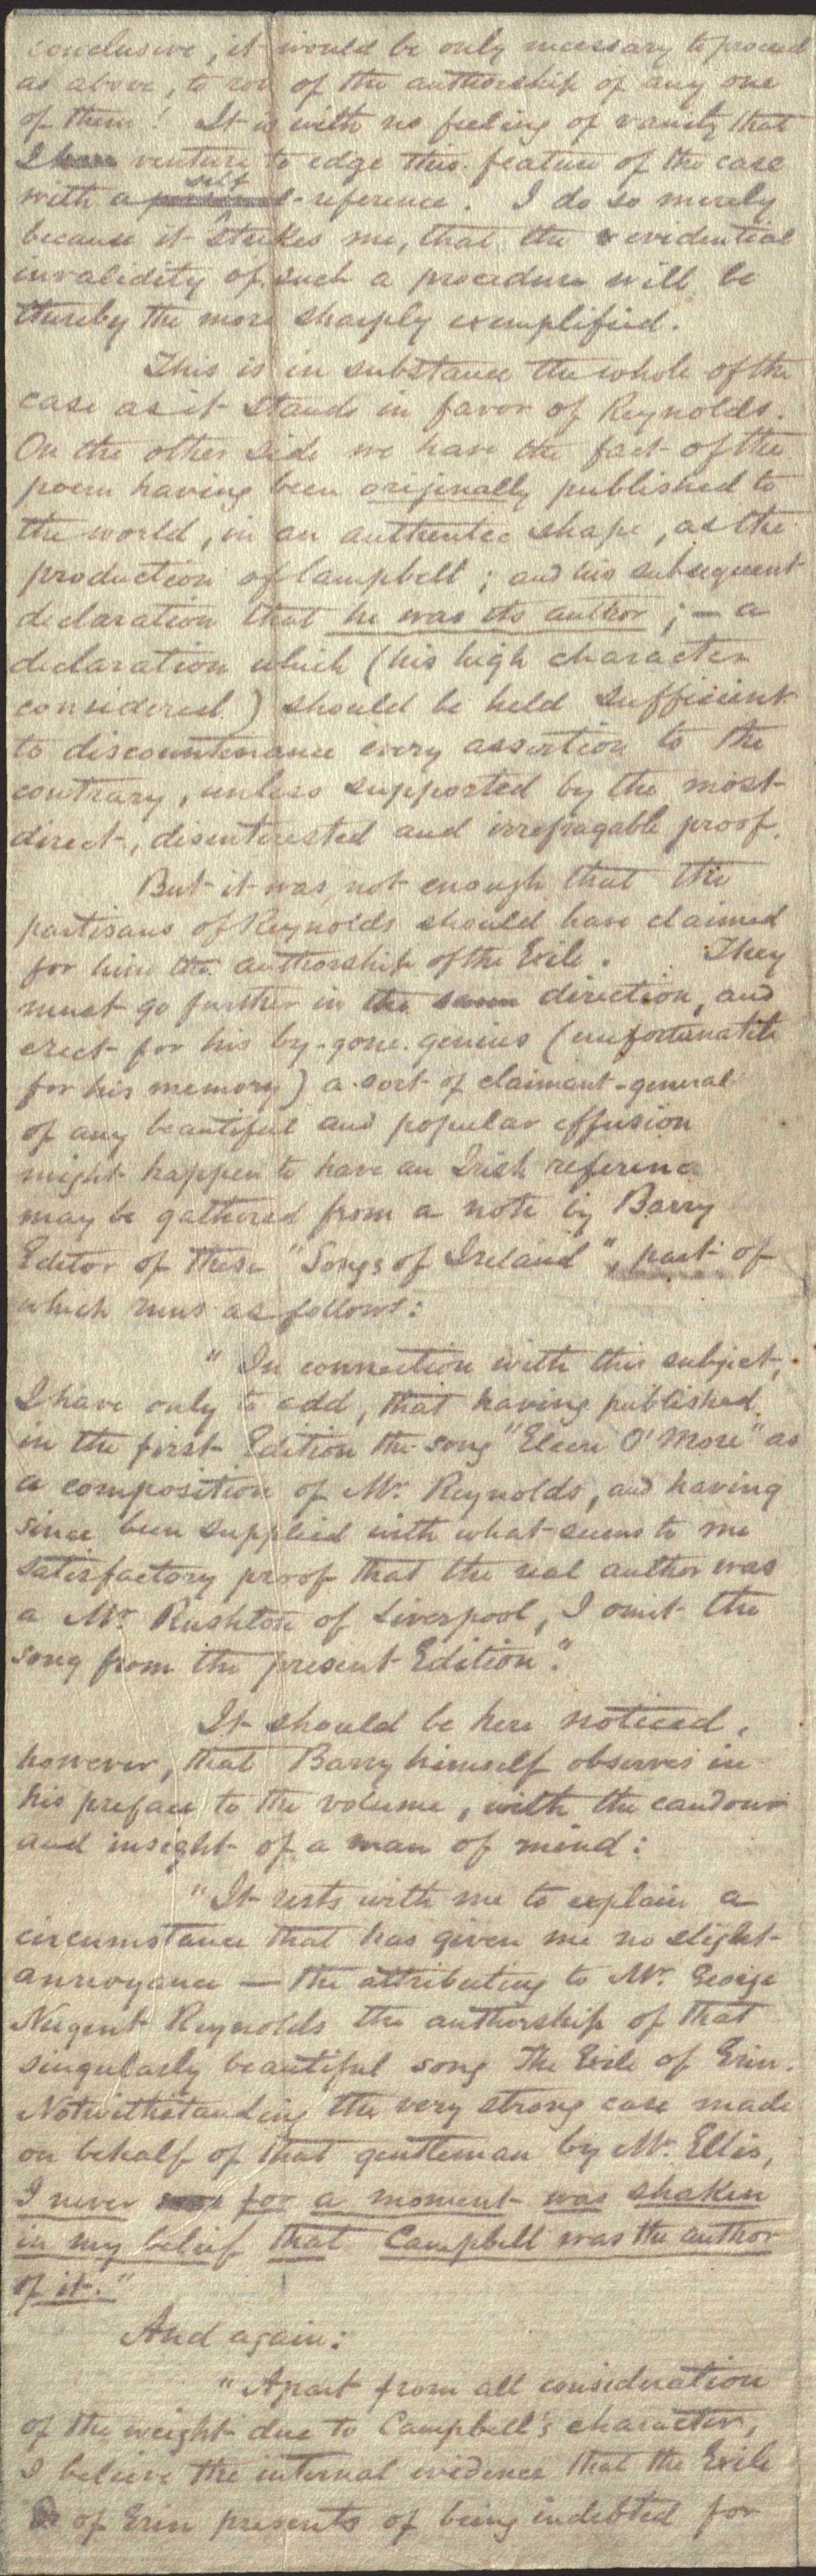 conclusive, it would be only necessary to proceed
as above, to rob of the authorship of any one
of them! It is with no feeling of vanity that
I have venture to edge this feature of the case
with a self-reference. I do so merely
because it strikes me, that the evidential
invalidity of such a procedure will be
thereby the more sharply exemplified.
This is in substance the whole of the
case as it stands in favor of Reynolds.
On the other side we have the fact of the
poem having been originally published to
the world, in an authentic shape, as the
production of Campbell; and his subsequent
declaration that he was its author; — a
declaration which (his high character
considered) should be held sufficient
to discountenance every assertion to the
contrary, unless supported by the most
direct, disinterested and irrefragable proof.
But it was not enough that the
partisans of Reynolds should have claimed
for him the authorship of the Exile. They
must go further in the same direction, and
erect for his by-gone genius (unfortunately
for his memory) a sort of claimant-general
of any beautiful and popular effusion
might happen to have an Irish reference
may be gathered from a note by Barry
Editor of these "Songs of Ireland", part of
which runs as follows:
"In connection with this subject,
I have only to add, that having published
in the first Edition the song "Eleen O'More" as
a composition of Mr. Reynolds, and having
since been supplied with what seems to me
satisfactory proof that the real author was
a Mr. Rushton of Liverpool, I omit the
song from the present Edition."
It should be here noticed,
however, that Barry himself observes in
his preface to the volume, with the candour
and insight of a man of mind:
"It rests with me to explain a
circumstance that has given me no slight
annoyance — the attributing to Mr. George
Nugent Reynolds the authorship of that
singularly beautiful song The Exile of Erin.
Notwithstanding the very strong case made
on behalf of that gentleman by Mr. Ellis,
I never for a moment was shaken
in my belief that Campbell was the author
of it."
And again:
"Apart from all consideration
of the weight due to Campbell's character,
I believe the internal evidence that the Exile
of Erin presents of being indebted for